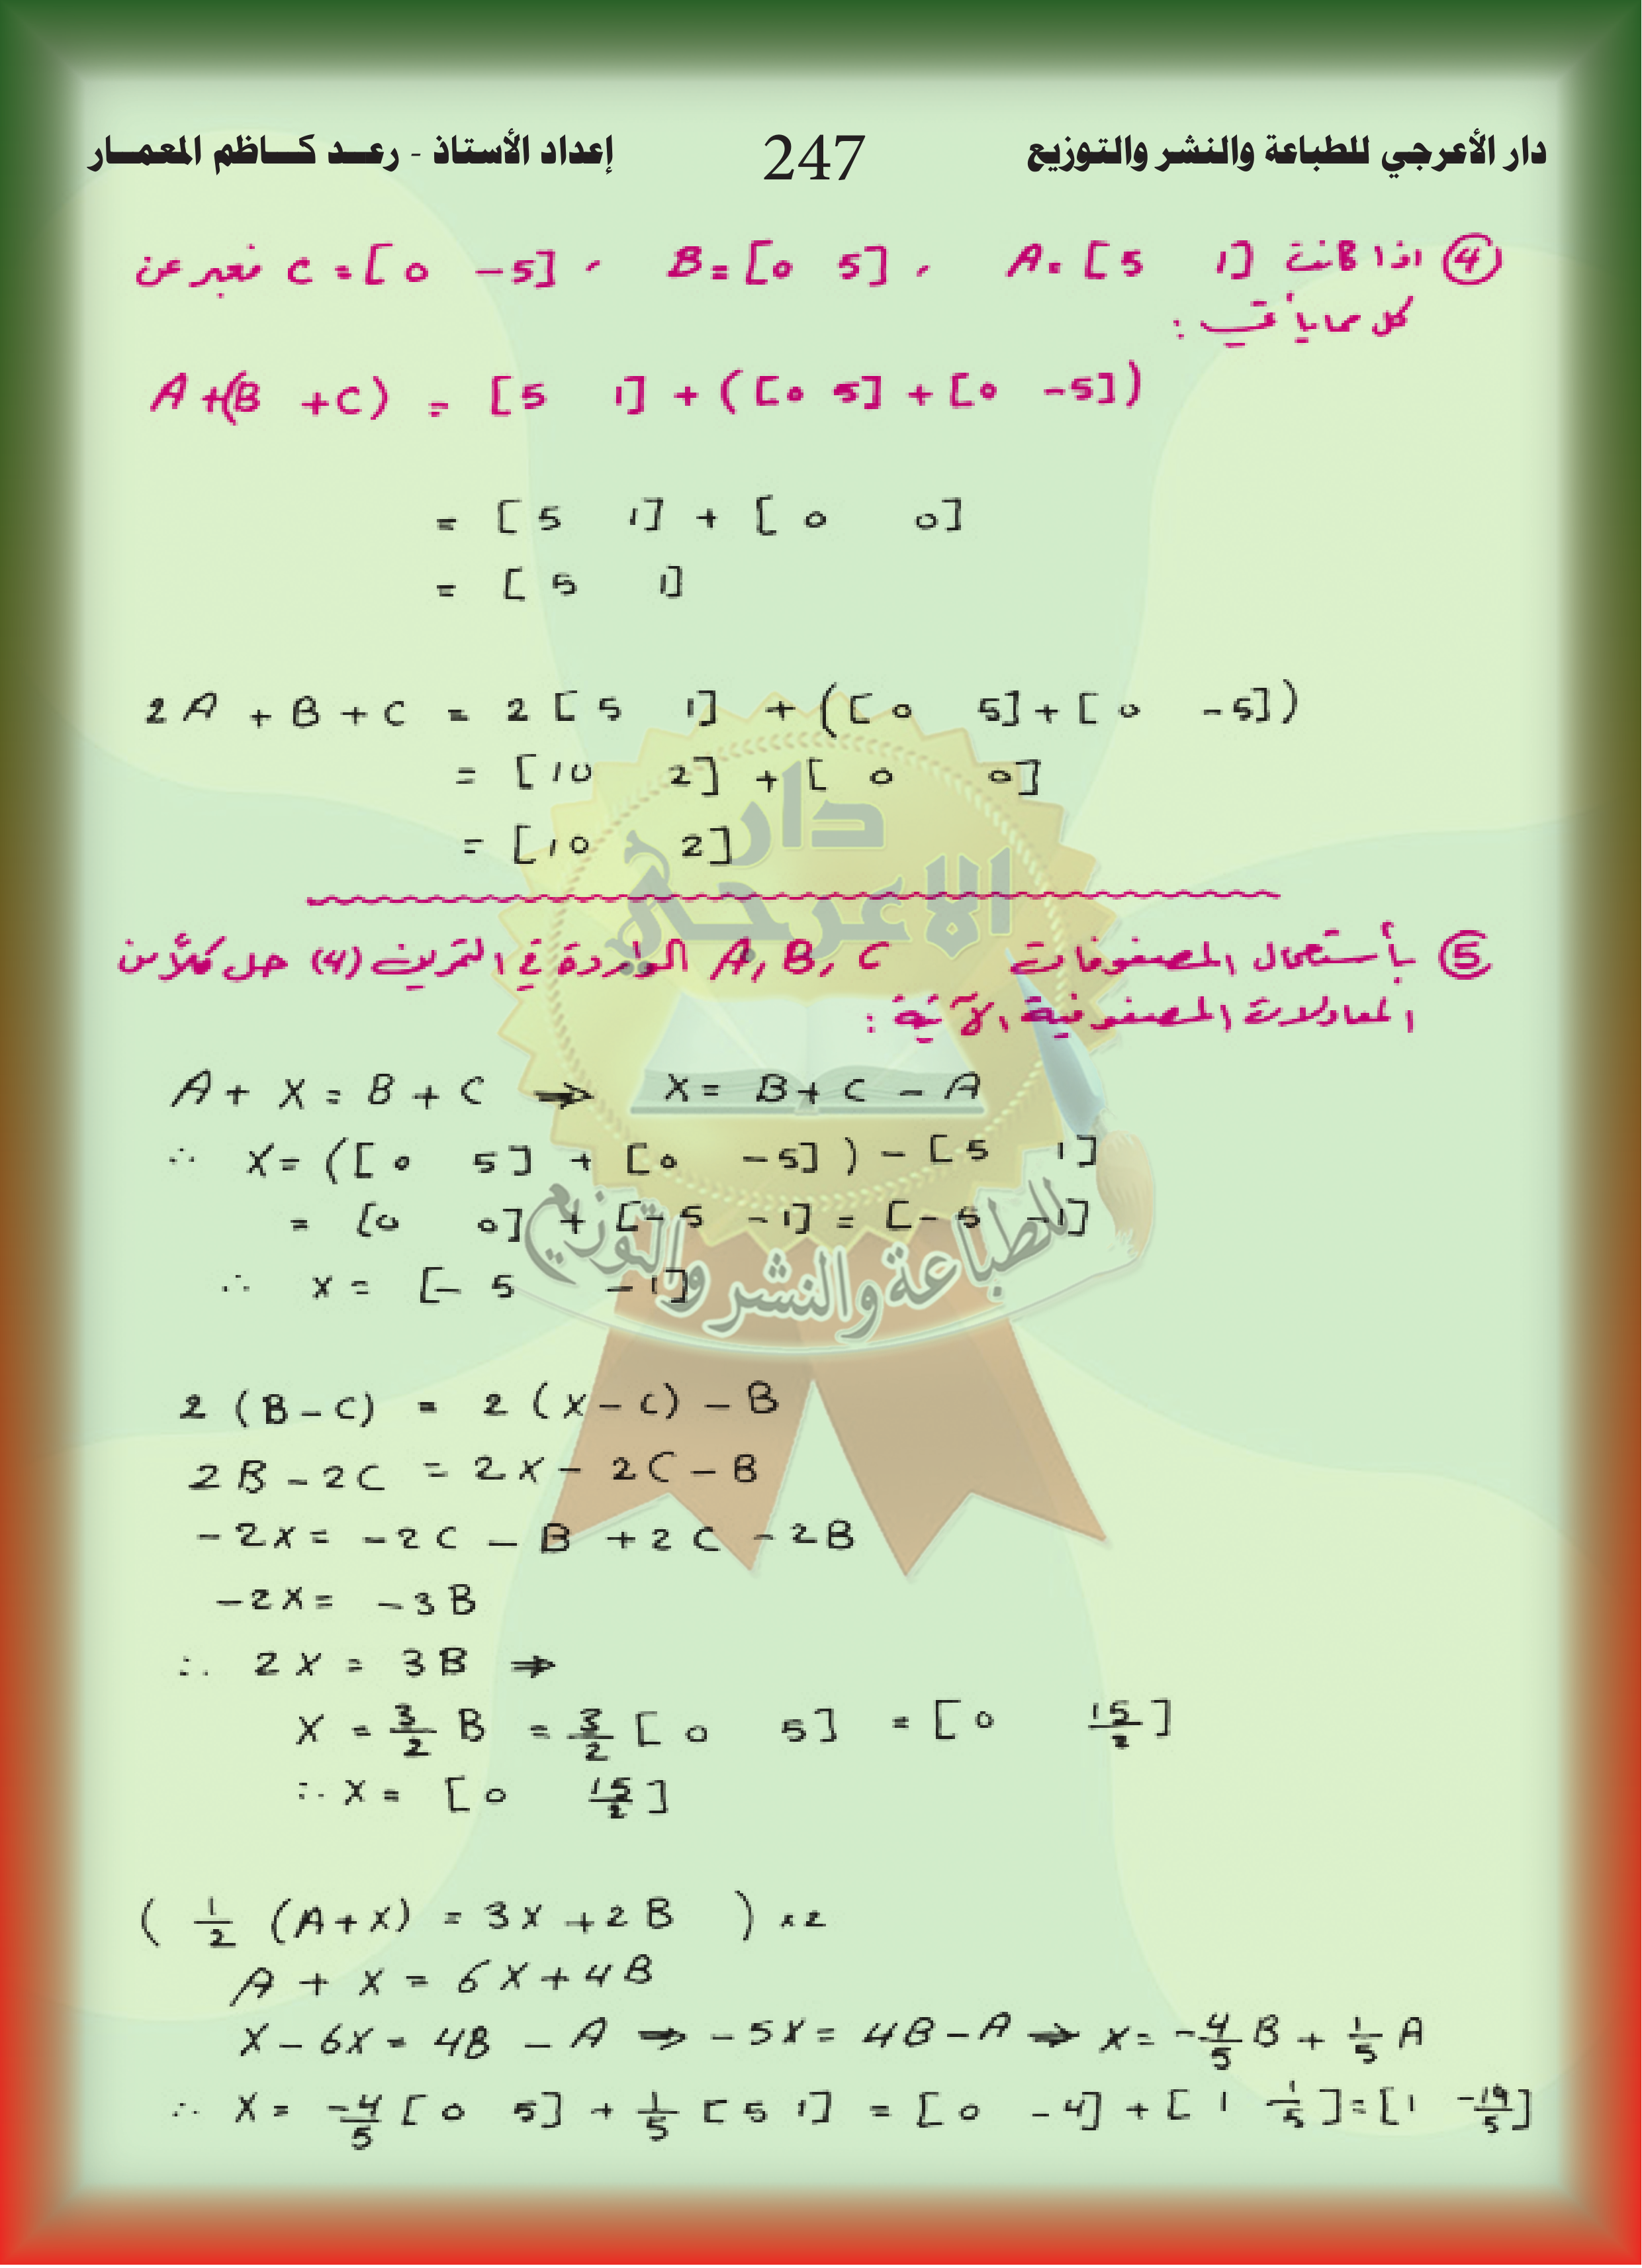 دار الأعرجي للطباعة والنشر والتوزيع 247 إعداد الأستاذ - رعد كاظم المعمار
④ اذا كانت A = [5 1] ، B = [0 5] ، C = [0 -5] فعبر عن
كل مما يأتي :
A+(B +C) = [5 1] + ([0 5] + [0 -5])
= [5 1] + [0 0]
= [5 1]
2A + B + C = 2[5 1] + ([0 5] + [0 -5])
= [10 2] + [0 0]
= [10 2]
⑤ بأستعمال المصفوفات A, B, C الواردة في التمرين (4) حل كلاً من
المعادلات المصفوفية الآتية :
A + X = B + C ⇒ X = B + C - A
∴ X = ([0 5] + [0 -5]) - [5 1]
= [0 0] + [-5 -1] = [-5 -1]
∴ X = [-5 -1]
2(B - C) = 2(X - C) - B
2B - 2C = 2X - 2C - B
-2X = -2C - B + 2C - 2B
-2X = -3B
∴ 2X = 3B ⇒
X = 3/2 B = 3/2 [0 5] = [0 15/2]
∴ X = [0 15/2]
( 1/2 (A+X) = 3X + 2B ) ×2
A + X = 6X + 4B
X - 6X = 4B - A ⇒ -5X = 4B - A ⇒ X = -4/5 B + 1/5 A
∴ X = -4/5 [0 5] + 1/5 [5 1] = [0 -4] + [1 1/5] = [1 -19/5]
دار
الاعرجي
للطباعة والنشر والتوزيع